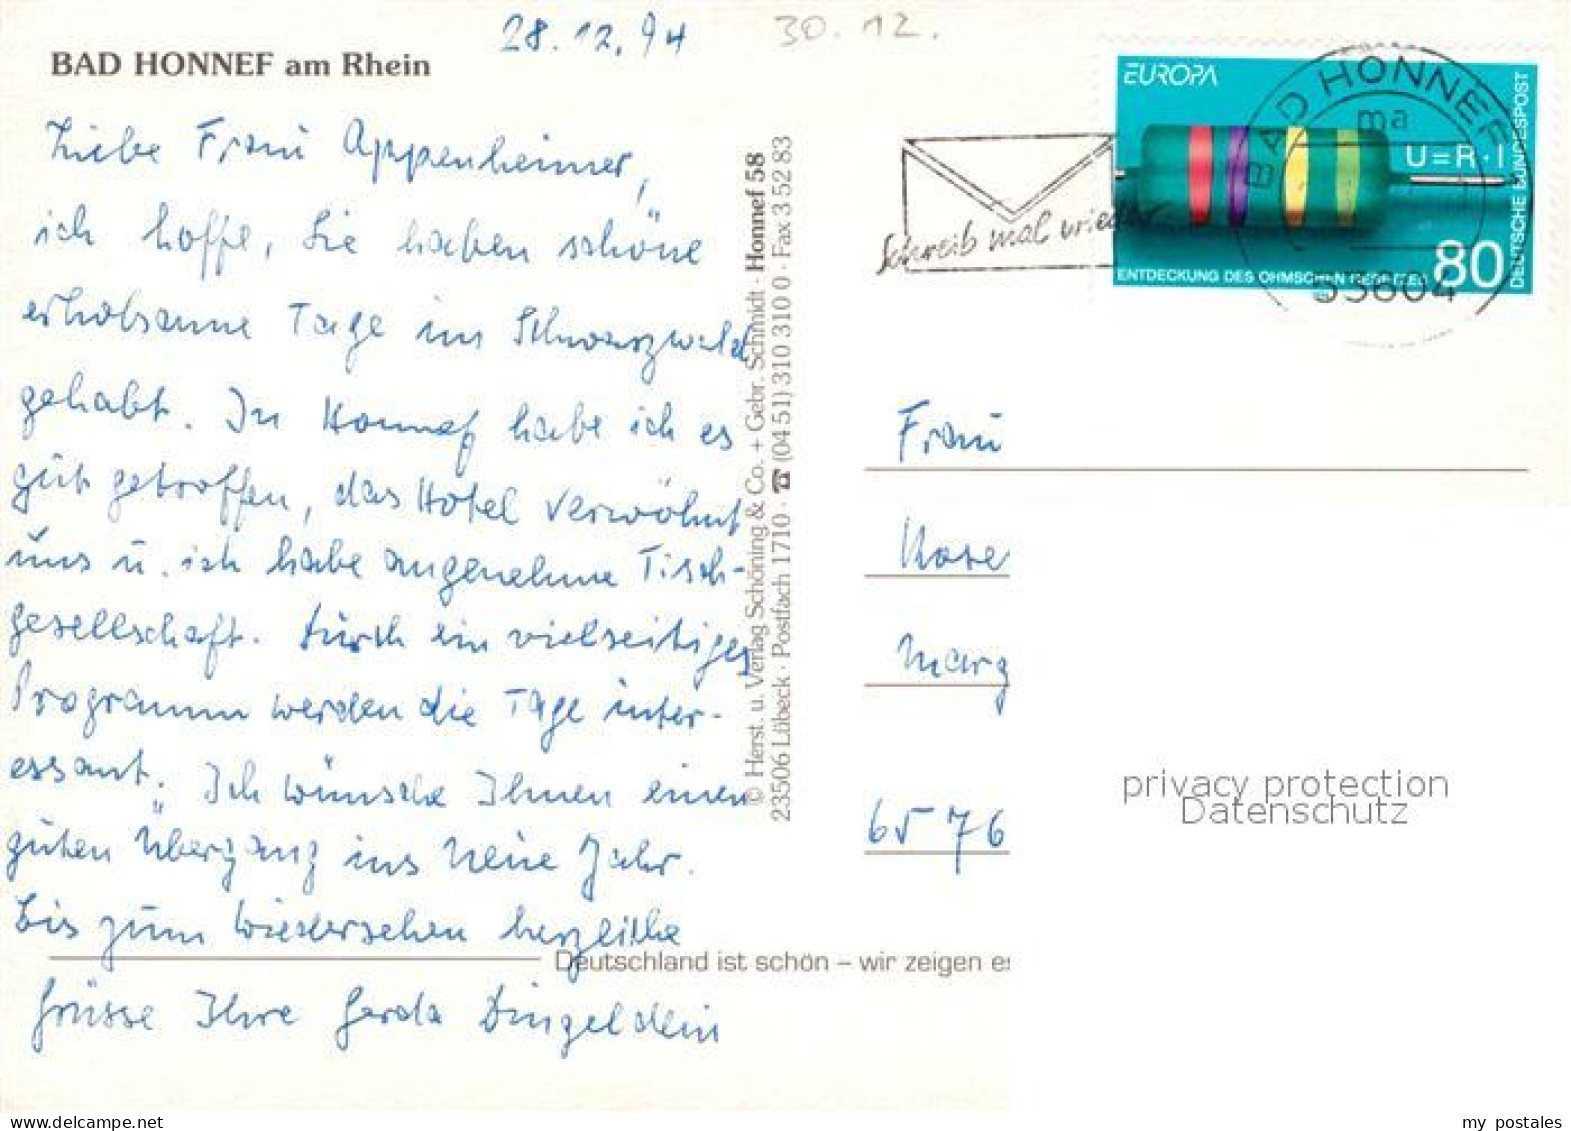 28.12.94
30.12.
BAD HONNEF am Rhein
Liebe Frau Appenheimer,
ich hoffe, Sie haben schöne
erholsame Tage im Schwarzwald
gehabt. In Honnef habe ich es
gut getroffen, das Hotel verwöhnt
uns u. ich habe angenehme Tisch-
gesellschaft. Durch ein vielseitiges
Programm werden die Tage inter-
essant. Ich wünsche Ihnen einen
guten Übergang ins Neue Jahr.
Bis zum Wiedersehen herzliche
Grüsse Ihre Gerda Dingeldein
© Herst. u. Verlag Schöning & Co. + Gebr. Schmidt · Honnef 58
23506 Lübeck · Postfach 1710 · ☎ (04 51) 310 310 0 · Fax 3 52 83
Deutschland ist schön – wir zeigen es
Schreib mal wieder
EUROPA
BAD HONNEF
ma
U=R·I
DEUTSCHE BUNDESPOST
ENTDECKUNG DES OHMSCHEN GESETZES
80
53604
Frau
Marg
6576
privacy protection
Datenschutz
my postales